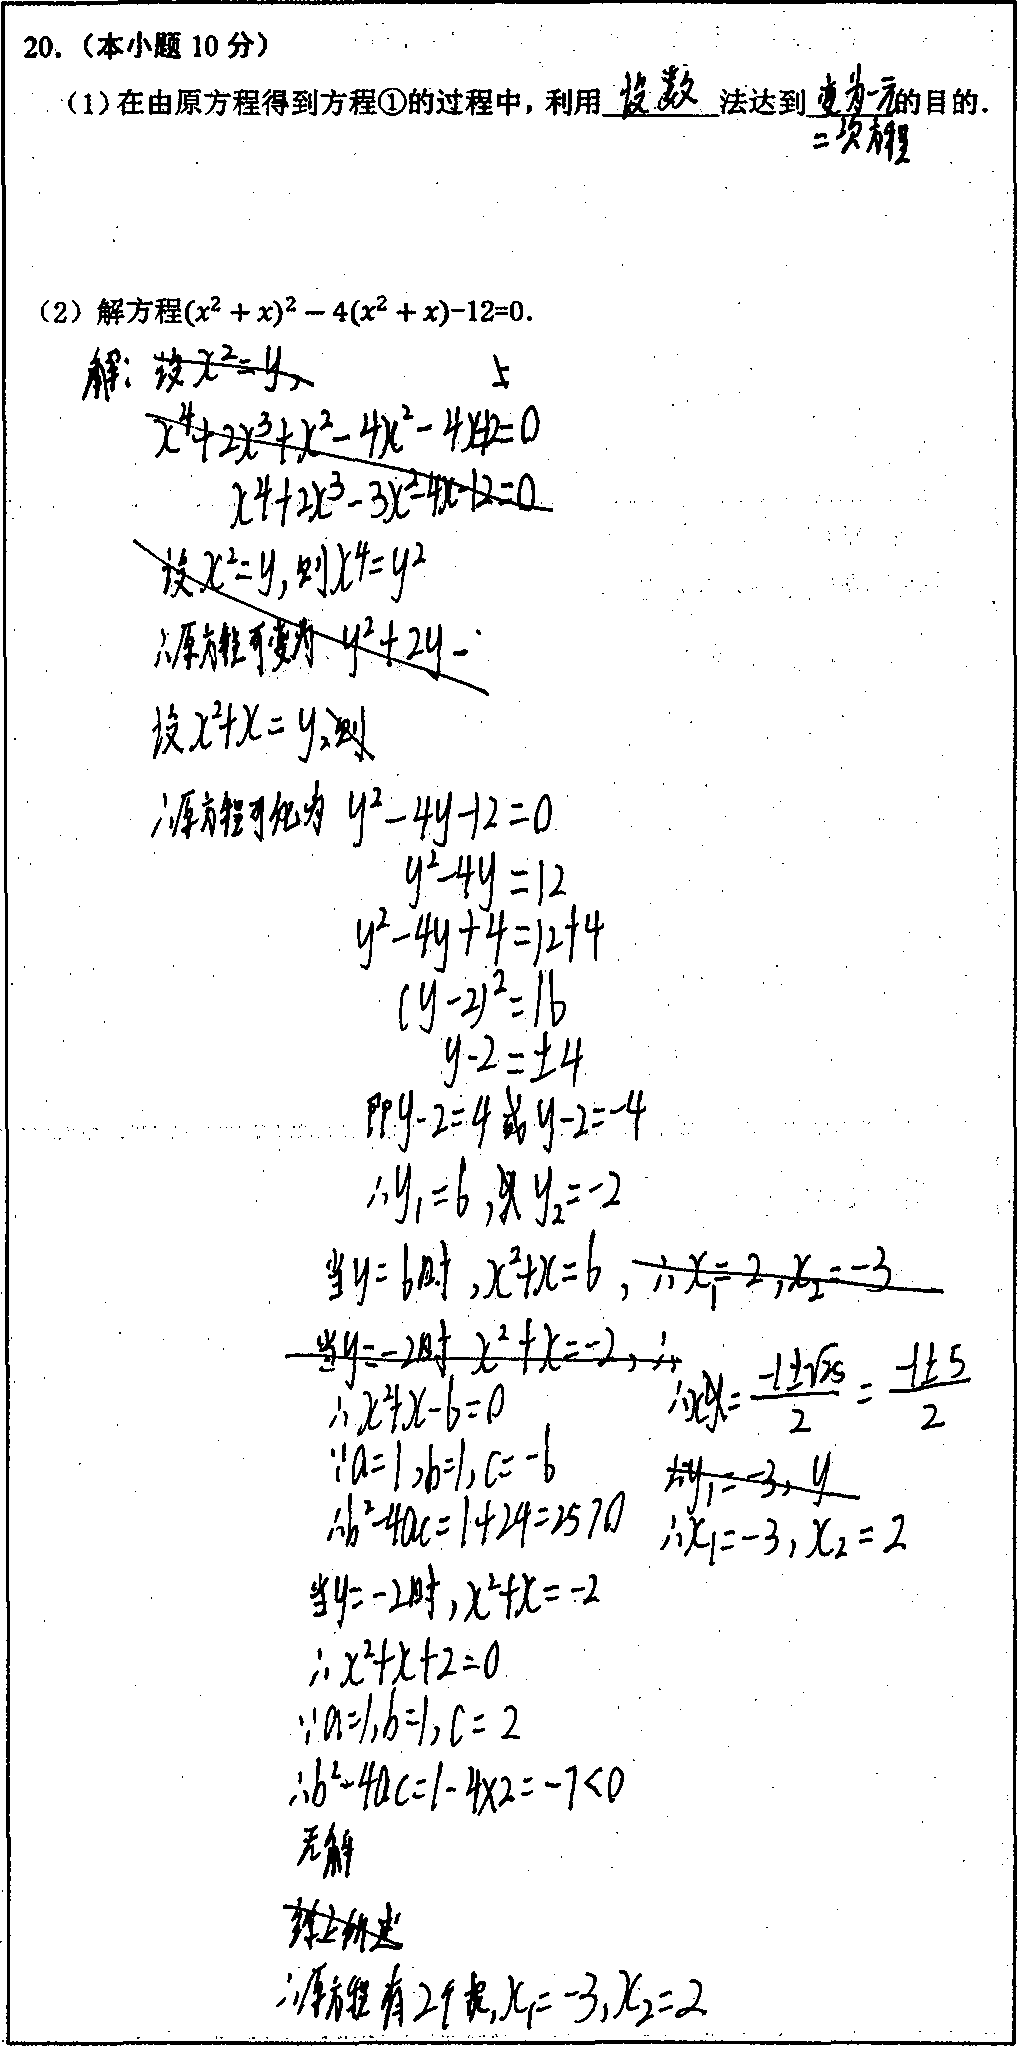 20.（本小题 10 分）
（1）在由原方程得到方程①的过程中，利用 设数 法达到 变为一元的目的.
二项方程
（2）解方程(x² + x)² − 4(x² + x)-12=0.
解: 设x²=y,
x⁴+2x³+x²-4x²-4x-12=0
x⁴+2x³-3x²-4x-12=0
设x²=y,则x⁴=y²
∴原方程可变为 y²+2y-
设x²+x=y,则
∴原方程可化为 y²-4y-12=0
y²-4y=12
y²-4y+4=12+4
(y-2)²=16
y-2=±4
即y-2=4或y-2=-4
∴y₁=6, y₂=-2
当y=6时,x²+x=6, ∴x₁=2,x₂=-3
当y=-2时 x²+x=-2,∴
∴x²+x-6=0
∵a=1,b=1,c=-6
∴b²-4ac=1+24=25>0
∴x=(-1±√25)/2=(-1±5)/2
∴y₁=-3, y
∴x₁=-3, x₂=2
当y=-2时,x²+x=-2
∴x²+x+2=0
∵a=1,b=1,c=2
∴b²-4ac=1-4×2=-7<0
无解
综上所述
∴原方程有2个根,x₁=-3,x₂=2